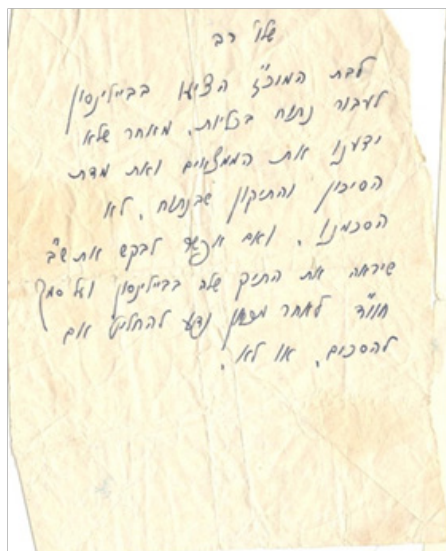 שלו' רב
לבת המוכ"ז הציעו בביילינסון
לעבור נתוח בכליות. מאחר שלא
ידענו את הממצאים ואת מדת
הסיכון והתיקון שבנתוח, לא
הסכמנו. ואם אפשר לבקש את שב'
שיראה את התיק שלה בביילינסון ועל סמך
חוו"ד לאחר מכן נדע להחליט אם
להסכים, או לא.